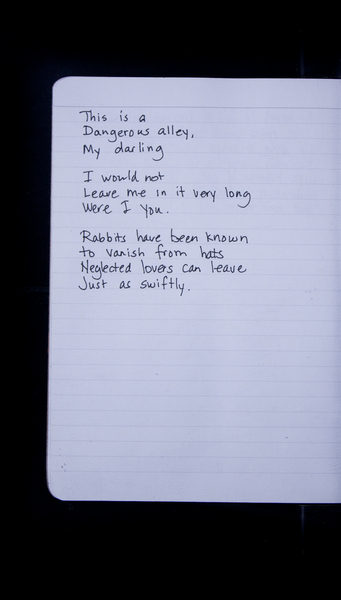 This is a
Dangerous alley,
My darling
I would not
Leave me in it very long
Were I you.
Rabbits have been known
to vanish from hats
Neglected lovers can leave
Just as swiftly.